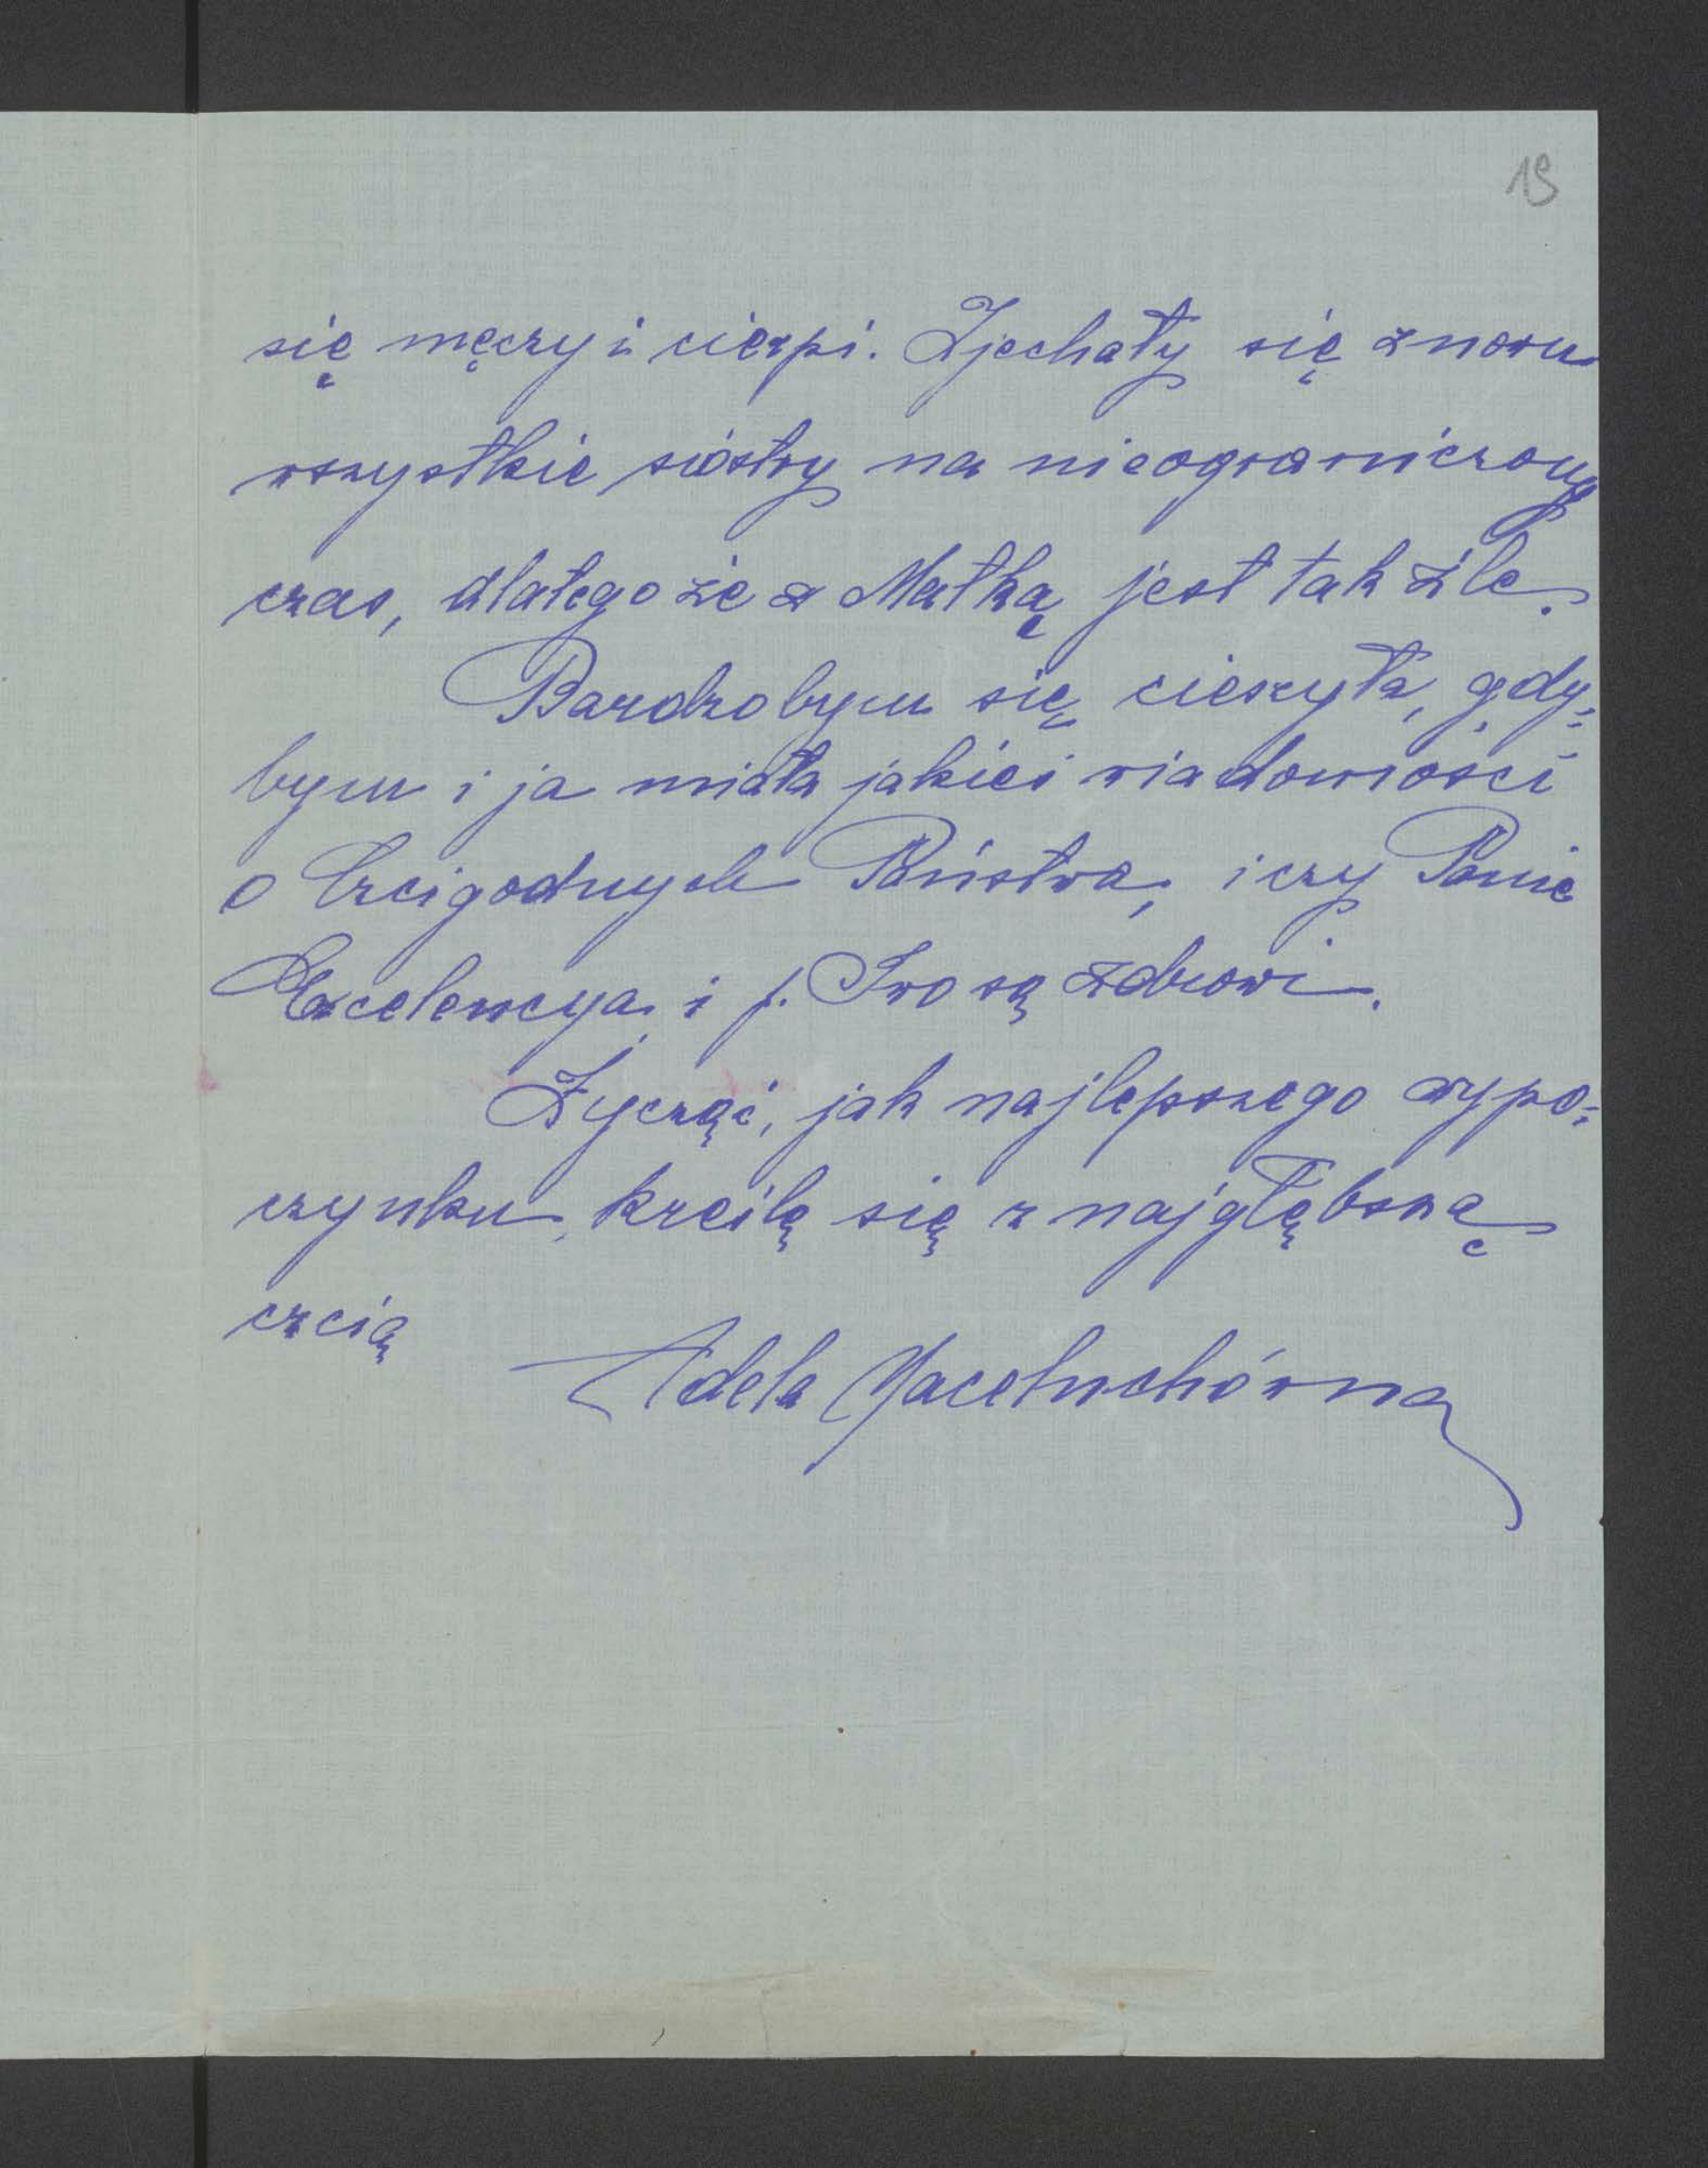 19
się męczy i cierpi. Zjechały się znowu
wszystkie siostry na nieograniczony
czas, dlatego że z Matką jest tak źle.
Bardzobym się cieszyła, gdy=
bym i ja miała jakieś wiadomości
o Czcigodnych Państwa, i czy Panie
Excelencya i p. Iwo są zdrowi.
Życząc, jak najlepszego wypo=
czynku, kreślę się z najgłębszą
czcią
Adela